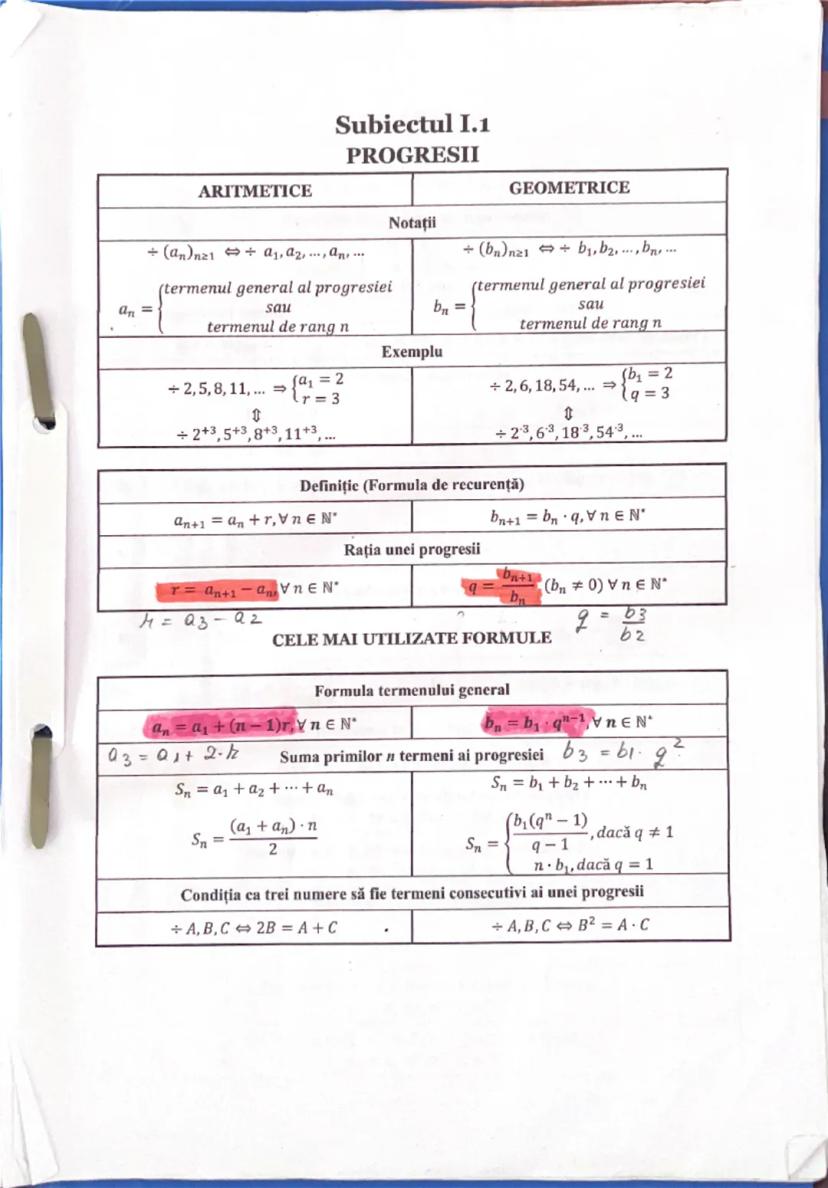 Subiectul I.1
PROGRESII
ARITMETICE
GEOMETRICE
Notații
÷ (aₙ)ₙ≥₁ ⇔ ÷ a₁, a₂, ..., aₙ, ...
÷ (bₙ)ₙ≥₁ ⇔ ÷ b₁, b₂, ..., bₙ, ...
aₙ = { termenul general al progresiei
sau
termenul de rang n
bₙ = { termenul general al progresiei
sau
termenul de rang n
Exemplu
÷ 2, 5, 8, 11, ... ⇒ { a₁ = 2
r = 3
⇕
÷ 2⁺³, 5⁺³, 8⁺³, 11⁺³, ...
÷ 2, 6, 18, 54, ... ⇒ { b₁ = 2
q = 3
⇕
÷ 2·³, 6·³, 18·³, 54·³, ...
Definiție (Formula de recurență)
aₙ₊₁ = aₙ + r, ∀ n ∈ ℕ*
bₙ₊₁ = bₙ · q, ∀ n ∈ ℕ*
Rația unei progresii
r = aₙ₊₁ − aₙ, ∀ n ∈ ℕ*
q = bₙ₊₁ / bₙ, (bₙ ≠ 0) ∀ n ∈ ℕ*
r = a3 − a2
q = b3 / b2
CELE MAI UTILIZATE FORMULE
Formula termenului general
aₙ = a₁ + (n − 1)r, ∀ n ∈ ℕ*
bₙ = b₁ · qⁿ⁻¹, ∀ n ∈ ℕ*
a3 = a1 + 2·r
Suma primilor n termeni ai progresiei
b3 = b1 · q²
Sₙ = a₁ + a₂ + ⋯ + aₙ
Sₙ = (a₁ + aₙ) · n / 2
Sₙ = b₁ + b₂ + ⋯ + bₙ
Sₙ = { b₁(qⁿ − 1) / q − 1, dacă q ≠ 1
n · b₁, dacă q = 1
Condiția ca trei numere să fie termeni consecutivi ai unei progresii
÷ A, B, C ⇔ 2B = A + C
÷ A, B, C ⇔ B² = A · C